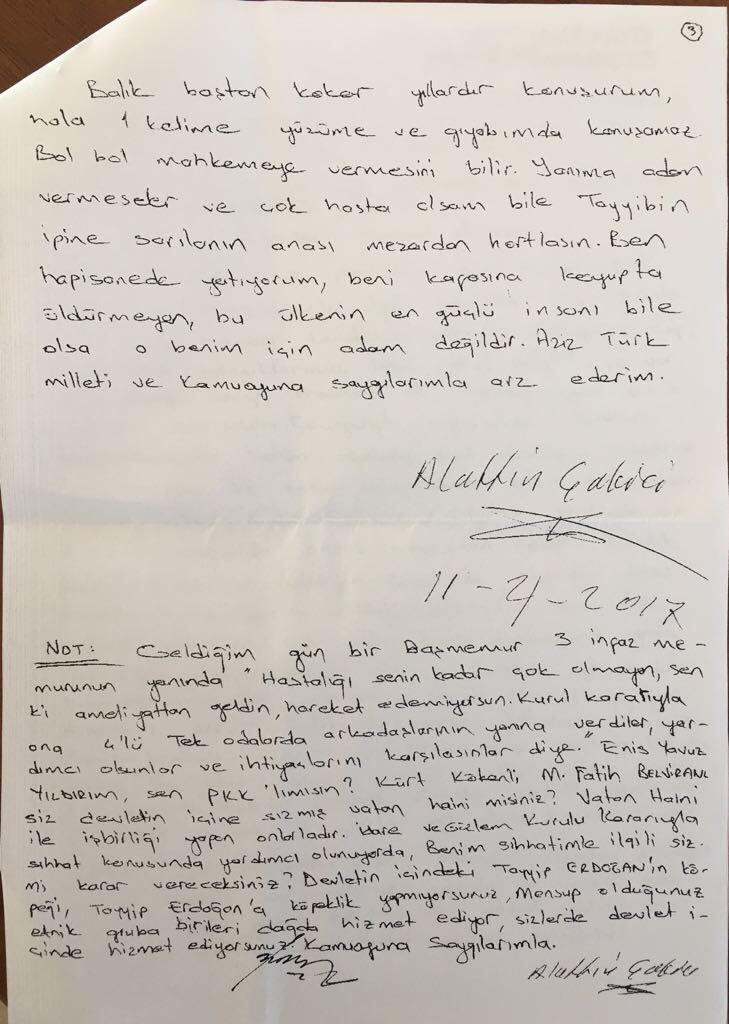 3
Balık baştan kokar yıllardır konuşurum,
hala 1 kelime yüzüme ve gıyabımda konuşamaz.
Bol bol mahkemeye vermesini bilir. Yanıma adam
vermeseler ve çok hasta olsam bile Tayyibin
ipine sarılanın anası mezardan hortlasın. Ben
hapisanede yatıyorum, beni kafasına koyupta
öldürmeyen, bu ülkenin en güçlü insanı bile
olsa o benim için adam değildir. Aziz Türk
milleti ve Kamuoyuna saygılarımla arz ederim.
Alattin Çakıcı
11-4-2017
NOT: Geldiğim gün bir Başmemur 3 infaz me-
murunun yanında "Hastalığı senin kadar çok olmayan, sen
ki ameliyattan geldin, hareket edemiyorsun. Kurul kararıyla
ona 4'lü Tek odalarda arkadaşlarının yanına verdiler, yar-
dımcı olsunlar ve ihtiyaçlarını karşılasınlar diye." Enis Yavuz
YILDIRIM, sen PKK 'lımısın? Kürt Kökenli, M. Fatih BELVİRANLI
siz devletin içine sızmış vatan haini misiniz? Vatan Haini
ile işbirliği yapan onlarladır. İdare ve Gözlem Kurulu Kararıyla
sıhhat konusunda yardımcı olunuyorda, Benim sıhhatimle ilgili siz
mi karar vereceksiniz? Devletin içindeki Tayyip ERDOĞAN'ın kö-
peği, Tayyip Erdoğan'a köpeklik yapmıyorsunuz, Mensup olduğunuz
etnik gruba birileri dağda hizmet ediyor, sizlerde devlet i-
çinde hizmet ediyorsunuz. Kamuoyuna Saygılarımla.
Alattin Çakıcı